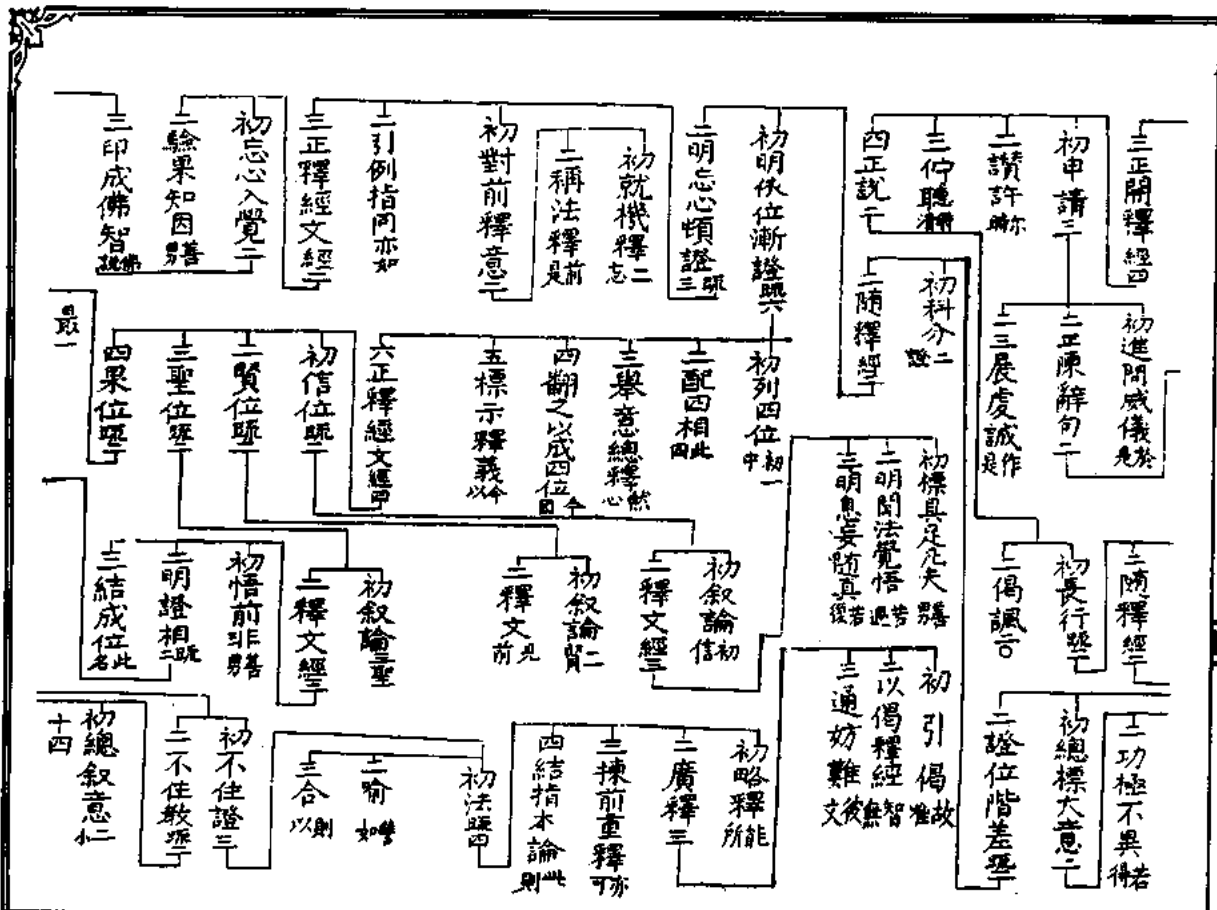 三正開釋經四
初申請三
二讚許
三佇聽
四正說二
初明依位漸證疏六
二明忘心頓證疏三
初就機釋二忘
二稱法釋是前
初對前釋意二
二引例指同亦如
三正釋經文經二
初忘心入覺二
二驗果知因男善
三印成佛智
初進問威儀是於
二正陳辭句二
三展虔誠是作
初科分二證
二隨釋經二
初列四位中初一
二配四相四此
三舉意總釋心然
四翻之以成四位
五標示釋義以今
六正釋經文經四
初信位疏二
二賢位疏二
三聖位疏二
四果位疏二
最一
二隨釋經二
初長行疏二
二偈諷二
初標具足凡夫男善
二明聞法覺悟若
三明息妄隨真後若
初敘論信初
二釋文經三
初敘論賢二
二釋文前見
初敘論二聖
二釋文經三
初悟前非男善
二明證相二疏
三結成位名此
二功極不異得若
初總標大意二
二證位階差疏二
初引偈故
二以偈釋經無智
三通妨難文彼
初略釋所能
二廣釋三
三揀前重釋可亦
四結指本論則此
初法疏四
二喻如譬
三合以則
初不住證三
二不住教疏二
初總敘意二
十四